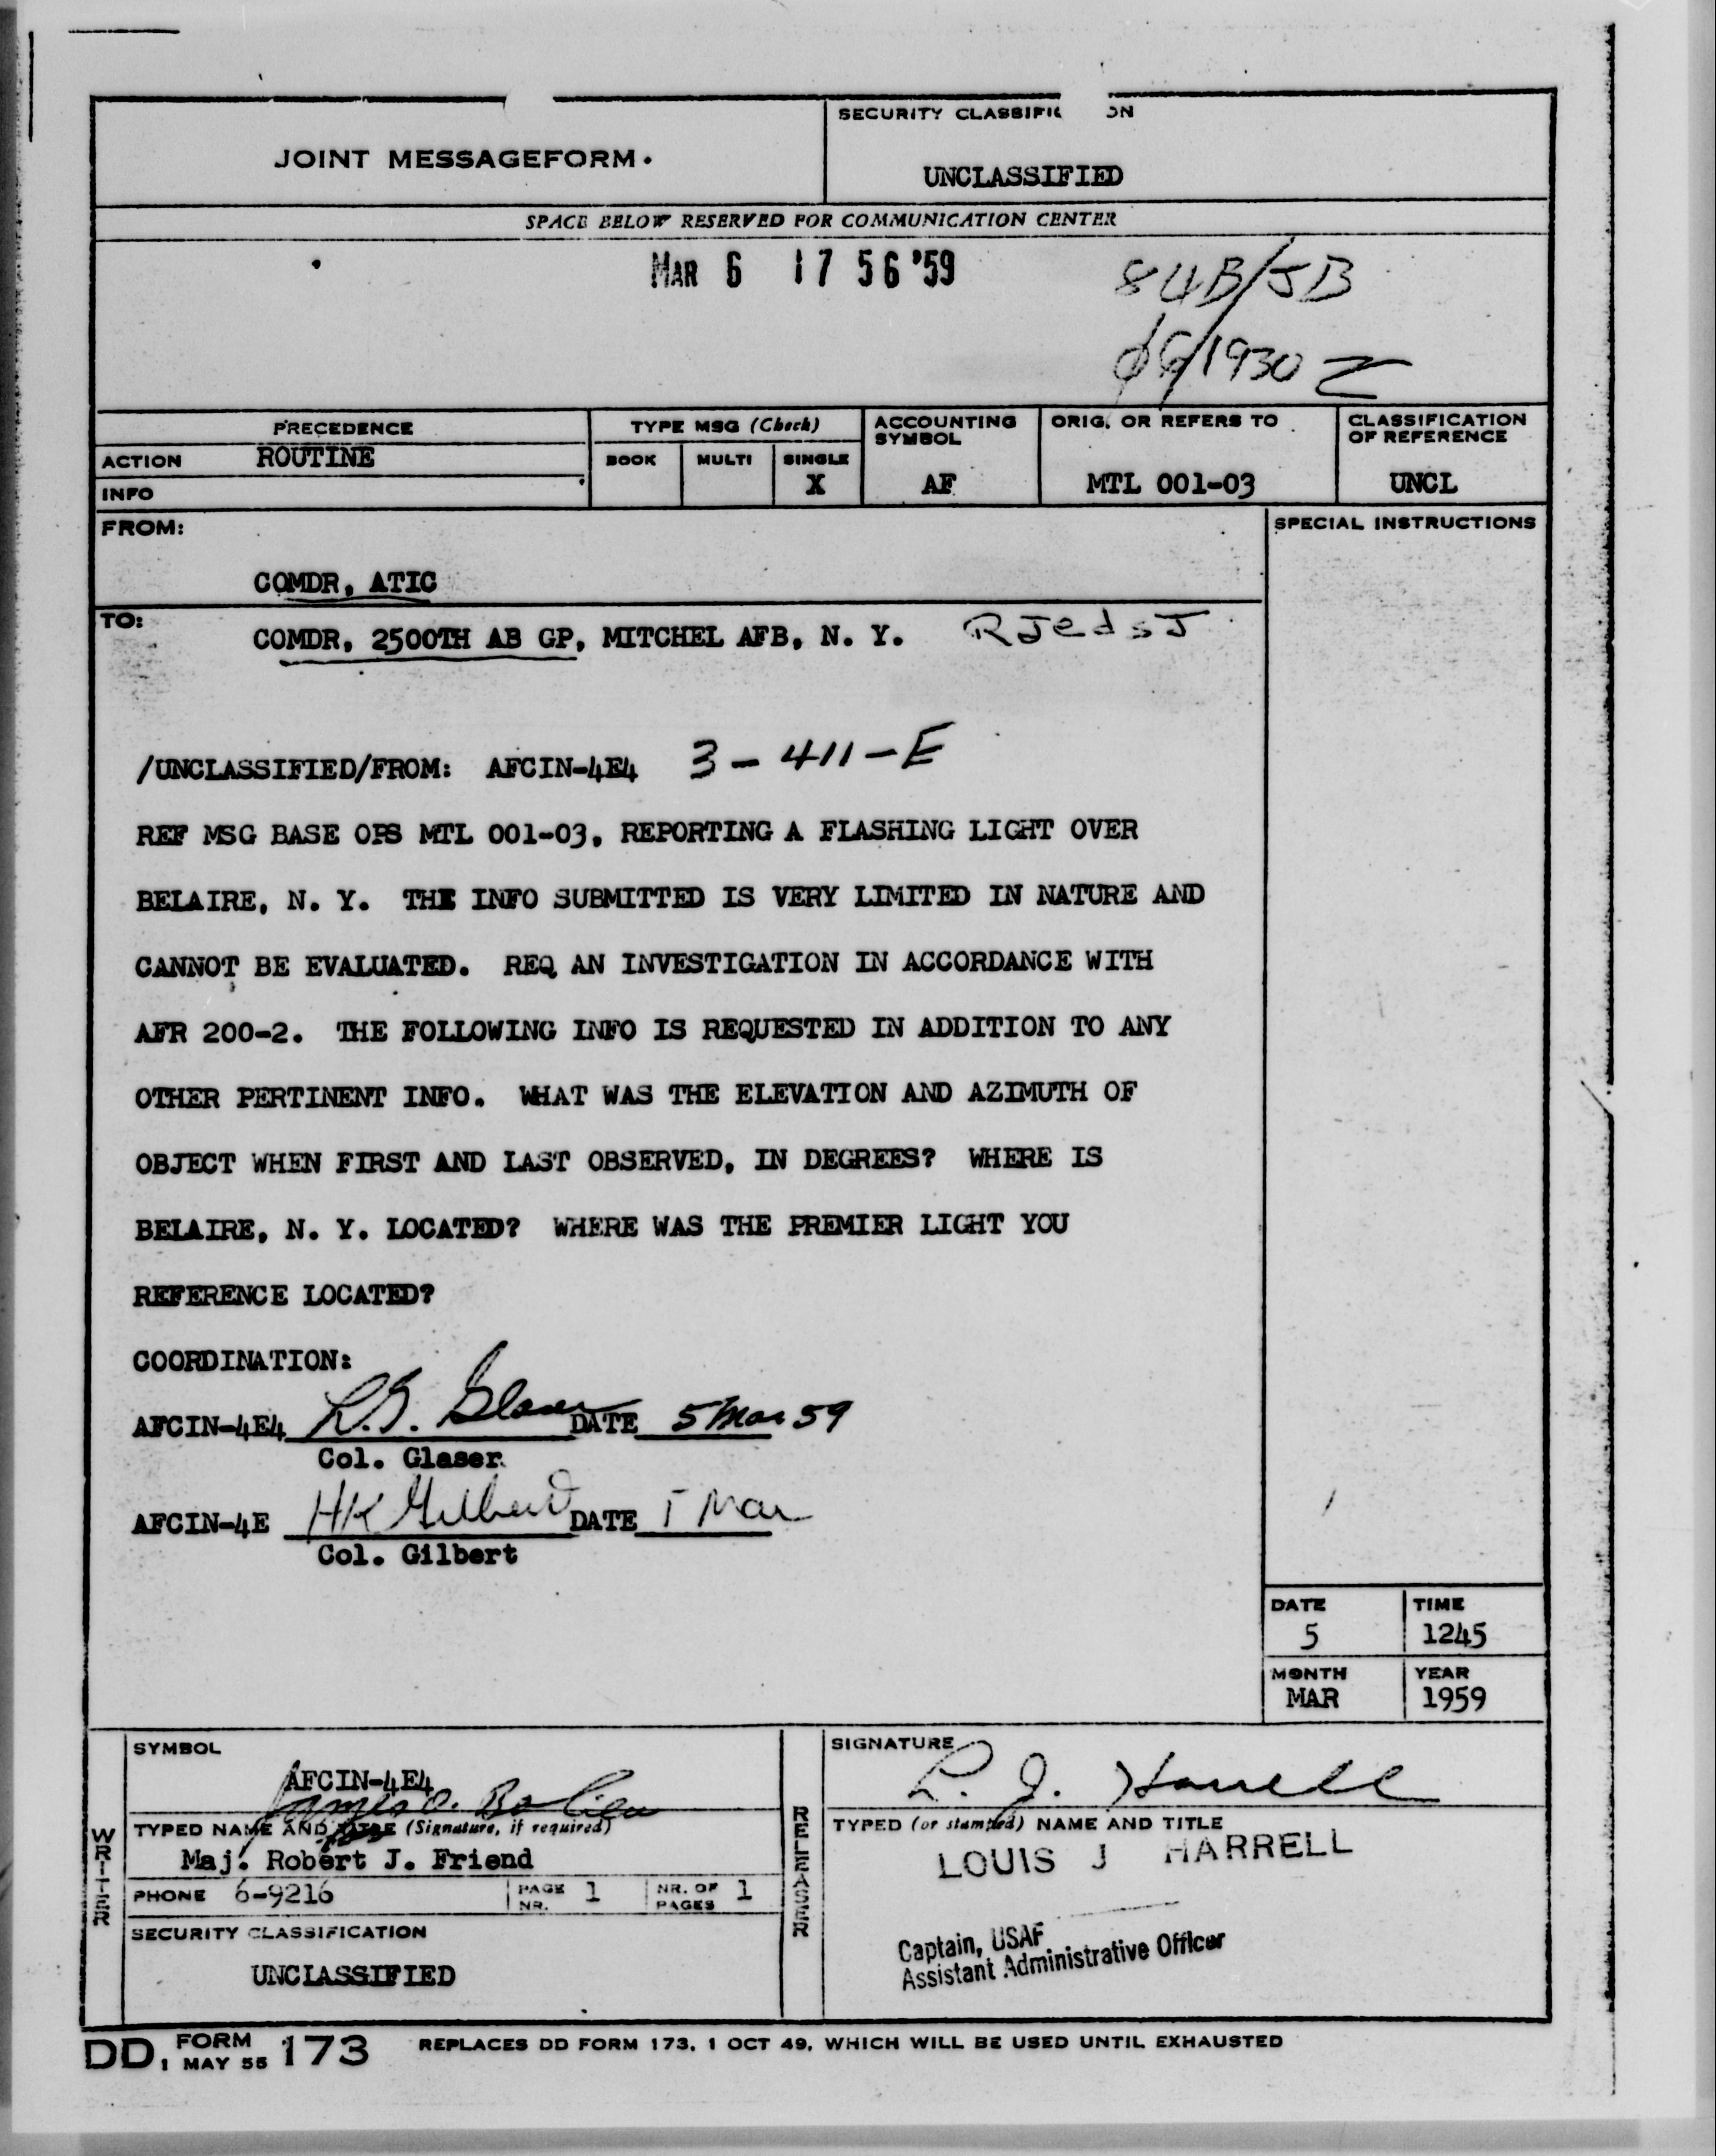 SECURITY CLASSIFIC ON
JOINT MESSAGEFORM.
UNCLASSIFIED
SPACE BELOW RESERVED FOR COMMUNICATION CENTER
MAR 6 17 56 '59
84B/JB
06/1930 Z
PRECEDENCE
TYPE MSG (Check)
ACCOUNTING SYMBOL
ORIG. OR REFERS TO
CLASSIFICATION OF REFERENCE
ACTION ROUTINE
BOOK MULTI SINGLE
X
AF
MTL 001-03
UNCL
INFO
FROM:
SPECIAL INSTRUCTIONS
COMDR, ATIC
TO:
COMDR, 2500TH AB GP, MITCHEL AFB, N. Y. RJedsJ
/UNCLASSIFIED/FROM: AFCIN-4E4 3-411-E
REF MSG BASE OPS MTL 001-03, REPORTING A FLASHING LIGHT OVER
BELAIRE, N. Y. THE INFO SUBMITTED IS VERY LIMITED IN NATURE AND
CANNOT BE EVALUATED. REQ AN INVESTIGATION IN ACCORDANCE WITH
AFR 200-2. THE FOLLOWING INFO IS REQUESTED IN ADDITION TO ANY
OTHER PERTINENT INFO. WHAT WAS THE ELEVATION AND AZIMUTH OF
OBJECT WHEN FIRST AND LAST OBSERVED, IN DEGREES? WHERE IS
BELAIRE, N. Y. LOCATED? WHERE WAS THE PREMIER LIGHT YOU
REFERENCE LOCATED?
COORDINATION:
AFCIN-4E4 DATE 5 Mar 59
Col. Glaser
AFCIN-4E HK Gilbert DATE 5 Mar
Col. Gilbert
DATE TIME
5 1245
MONTH YEAR
MAR 1959
SYMBOL
AFCIN-4E4
James O.
TYPED NAME AND TITLE (Signature, if required)
Maj. Robert J. Friend
PHONE 6-9216 PAGE NR. 1 NR. OF PAGES 1
SECURITY CLASSIFICATION
UNCLASSIFIED
WRITER
RELEASER
SIGNATURE
L. J. Harrell
TYPED (or stamped) NAME AND TITLE
LOUIS J HARRELL
Captain, USAF
Assistant Administrative Officer
DD FORM 1 MAY 55 173 REPLACES DD FORM 173, 1 OCT 49, WHICH WILL BE USED UNTIL EXHAUSTED